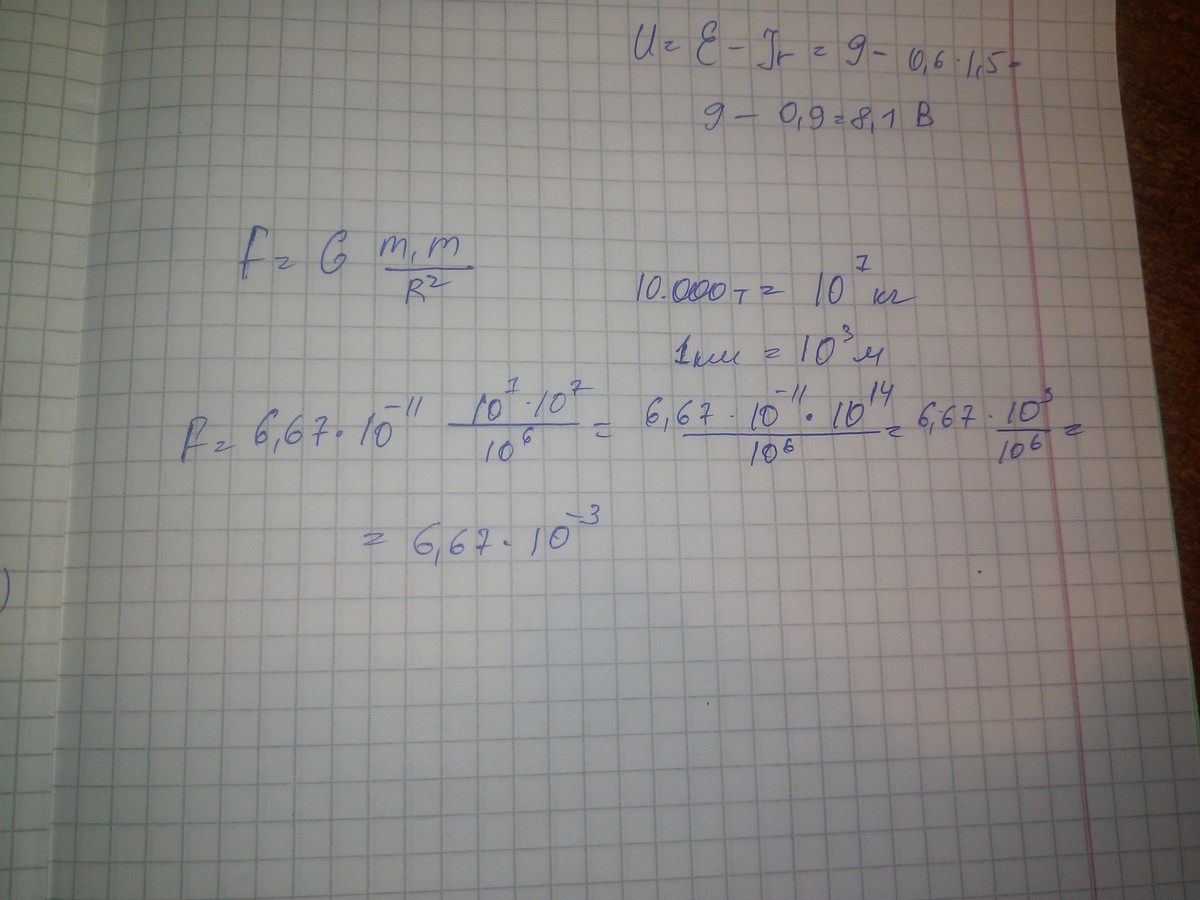 U = ℰ - Ir = 9 - 0,6 · 1,5 -
9 - 0,9 = 8,1 В
F = G m,m / R²
10.000 т = 10⁷ кг
1 км = 10³ м
F = 6,67 · 10⁻¹¹ 10⁷ · 10⁷ / 10⁶ = 6,67 · 10⁻¹¹ · 10¹⁴ / 10⁶ = 6,67 · 10³ / 10⁶ =
= 6,67 · 10⁻³
)